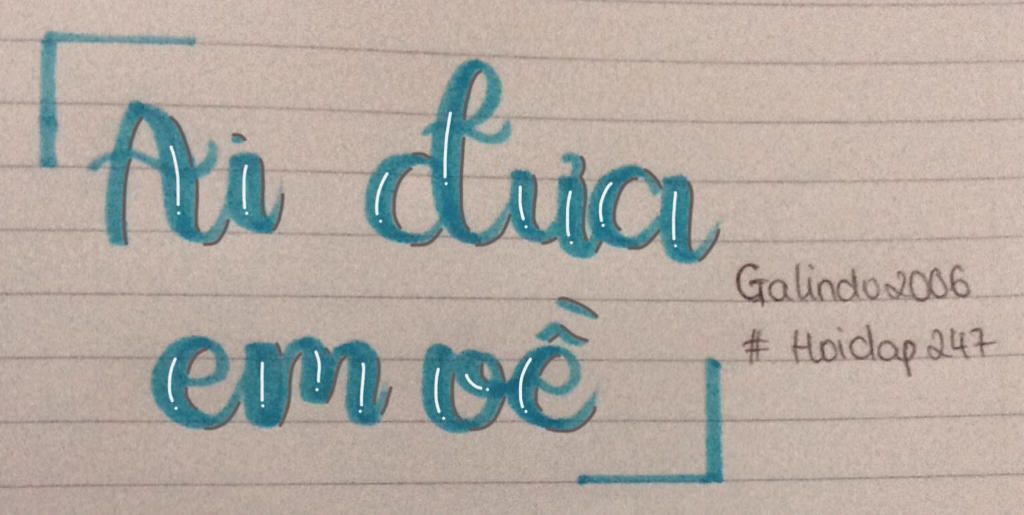 Ai đưa
em về
Galindo2006
# Hoidap247